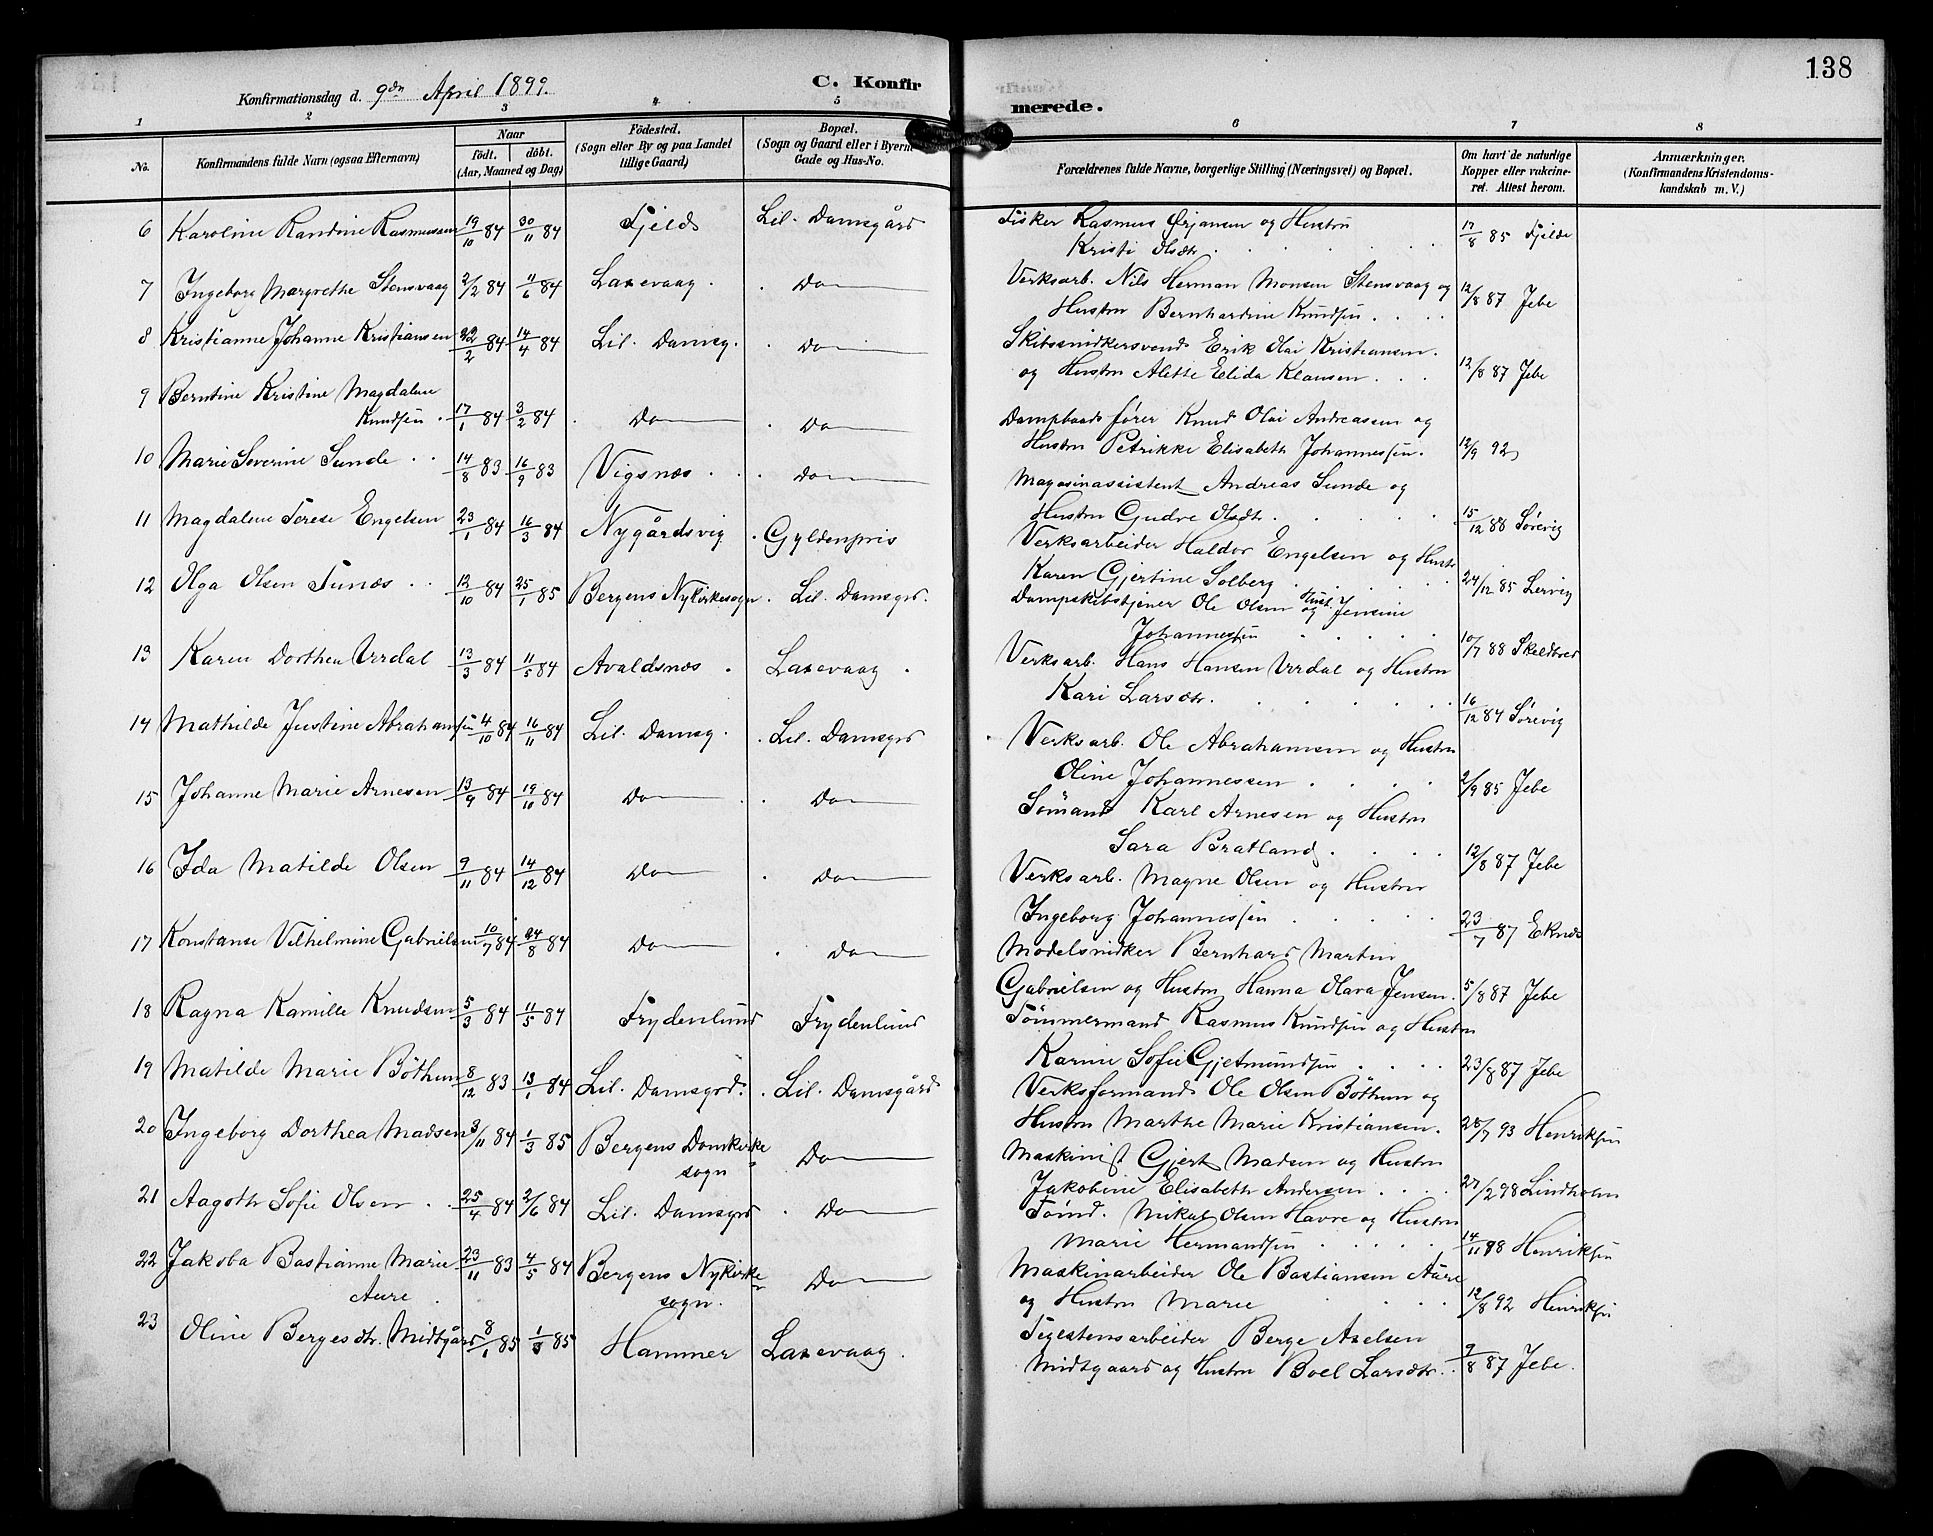 138
Konfirmationsdag d. 9de April 1899.
C. Konfirmerede.
1 2 3 4 5 6 7 8
No.
Konfirmandens fulde Navn (ogsaa Efternavn)
Naar
födt. döbt.
(Aar, Maaned og Dag)
Födested.
(Sogn eller By og paa Landet
tillige Gaard)
Bopæl.
(Sogn og Gaard eller i Byerne
Gade og Hus-No.
Forældrenes fulde Navne, borgerlige Stilling (Næringsvei) og Bopæl.
Om havt de naturlige
Kopper eller vakcine-
ret. Attest herom.
Anmærkninger.
(Konfirmandens Kristendoms-
kundskab m. V.)
6 Karoline Randine Rasmussen 19/10 84 30/11 84 Fjeld Lil. Damsgård Fisker Rasmus Ørjansen og Hustru
Kristi Olsdtr. 17/8 85 Fjelde
7 Ingeborg Margrethe Stensvaag 2/2 84 11/6 84 Laxevaag. Do Verksarb. Nils Herman Monsen Stensvaag og
Hustru Bernhardine Knudsen. 12/8 87 Jebe
8 Kristianne Johanne Kristiansen 22/2 84 14/4 84 Lil. Damsg. Do Skibssnidkersvend Erik Olai Kristiansen.
og Hustru Alette Elida Klausen. 12/8 87 Jebe
9 Berntine Kristine Magdalene
Knudsen. 17/1 84 3/2 84 Do Do Dampbaadsfører Knud Olai Andreassen og
Hustru Petrikke Elisabeth Johannessen. 12/9 92
10 Marie Severine Sunde 14/8 83 16/9 83 Vigsnæs. Do Magasinassistent Andreas Sunde og
Hustru Gudve Olsdtr. 15/12 88 Sørevig
11 Magdalene Terese Engelsen 23/1 84 16/3 84 Nygårdsvig. Gyldenpris Verksarbeider Haldor Engelsen og Hustr.
Karen Gjertine Solberg. 24/12 85 Lervig
12 Olga Olsen Tunæs 12/10 84 25/1 85 Bergens Nykirkesogn. Lil. Damsgrd. Dampskibstjener Ole Olsen og Hust. Jensine
Johannessen 10/7 88
13 Karen Dorthea Urdal 13/3 84 11/5 84 Avaldsnæs. Laxevaag. Verksarb. Hans Hansen Urdal og Hustru
Kari Larsdtr. 16/12 84 Sørevig
14 Mathilde Justine Abrahamsen 4/10 84 16/11 84 Lil. Damsg. Lil. Damsgrd Verksarb. Ole Abrahamsen og Hustru
Oline Johannessen. 2/9 85 Jebe
15 Johanne Marie Arnesen 13/9 84 19/10 84 Do Do Sømand Karl Arnesen og Hustru
Sara Bratland. 12/8 87 Jebe
16 Ida Matilde Olsen 9/11 84 14/12 84 Do Do Verksarb. Magne Olsen og Hustru
Ingeborg Johannessen 23/7 87
17 Konstanse Vilhelmine Gabrielsen 10/7 84 24/8 84 Do Do Modelsnidker Bernhard Martin
Gabrielsen og Hustru Hanna Olava Jensen. 5/8 87 Jebe
18 Ragna Kamille Knudsen 5/3 84 11/5 84 Frydenlund Frydenlund Tømmermand Rasmus Knudsen og Hustru
Karine Sofie Gjetmundsen 23/8 87 Jebe
19 Matilde Marie Böthun 8/12 83 13/1 84 Lil. Damsgrd. Lil. Damsgård Verksformand Ole Olsen Böthun og
Hustru Marthe Marie Kristiansen. 28/7 93 Henriksen
20 Ingeborg Dorthea Madsen 3/11 84 1/3 85 Bergens Domkirke
sogn Do Maskinist Gjert Madsen og Hustru
Jakobine Elisabeth Andersen. 27/2 98 Lindholm
21 Aagoth Sofie Olsen 25/4 84 2/6 84 Lil. Damsgrd Do Tømd. Mikal Olsen Havre og Hustru
Marie Hermandsen 14/11 98 Henriksen
22 Jakoba Bastianne Marie
Aure. 23/11 83 4/5 84 Bergens Nykirke
sogn. Do Maskinarbeider Ole Bastiansen Aure
og Hustru Marie 12/8 92 Henriksen
23 Oline Bergesdtr. Midtgård 8/1 85 1/3 85 Hammer Laxevaag. Tegestensarbeider Berge Axelsen
Midtgaard og Hustru Boel Larsdtr. 9/8 87 Jebe.